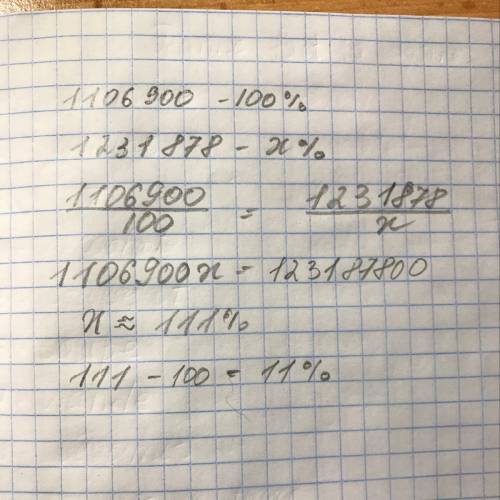 1106900 - 100%
1231878 - x%
1106900/100 = 1231878/x
1106900x = 123187800
x ≈ 111%
111 - 100 = 11%